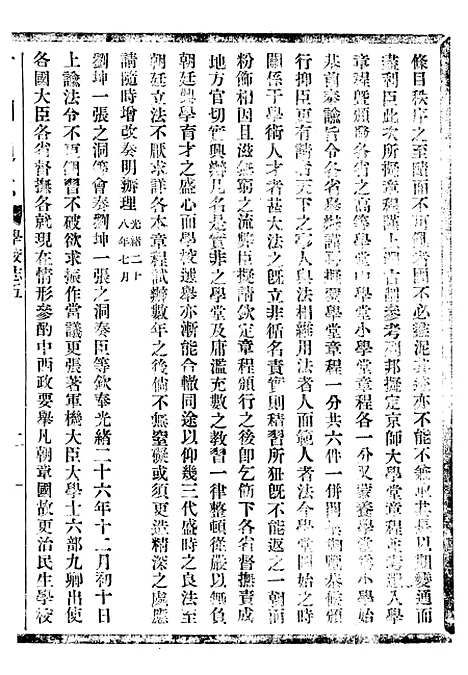 條目秩序之至賾而不可亂者固不必盡泥其迹亦不能不兼取其長以期變通而
盡利臣此次所擬章程謹上溯古制參考列邦擬定京師大學堂章程並考選入學
章程暨頒發各省之高等學堂中學堂小學堂章程各一分又蒙養學堂小學始
基首奉諭旨令各省舉辦謹擬蒙學堂章程一分共六件一併開單進呈恭候頒
行抑臣更有請者天下之事人與法相維用法者人而範人者法今學堂開始之時
關係于學術人才者甚大法之既立非循名責實則積習所狃既不能返之一朝
粉飾相因且滋無窮之流弊臣擬請欽定章程頒行之後即乞飭下各省督撫責成
地方官切實興辦凡名是實非之學堂及庸濫充數之教習一律整頓從嚴以無負
朝廷興學育才之盛心而學校選舉亦漸能合轍同途以仰幾三代盛時之良法至
朝廷立法不厭求詳各本章程試辦數年之後倘不無窒礙或須更造精深之處應
請隨時增改奏明辦理 光緒二十八年七月
劉坤一張之洞等會奏劉坤一張之洞奏臣等欽奉光緒二十六年十二月初十日
上諭法令不更錮習不破欲求振作當議更張著軍機大臣大學士六部九卿出使
各國大臣各省督撫各就現在情形參酌中西政要舉凡朝章國故吏治民生學校
學校志五